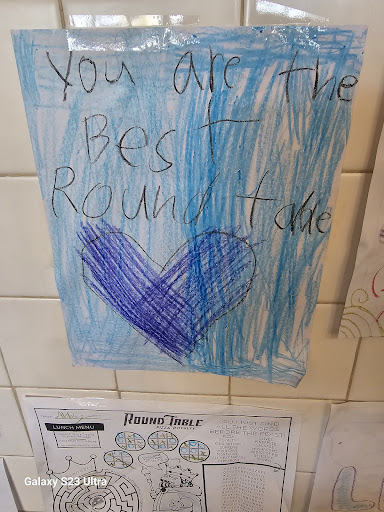 You are the
Best
Round table
ROUND TABLE
PIZZA ROYALTY
LUNCH MENU
Galaxy S23 Ultra